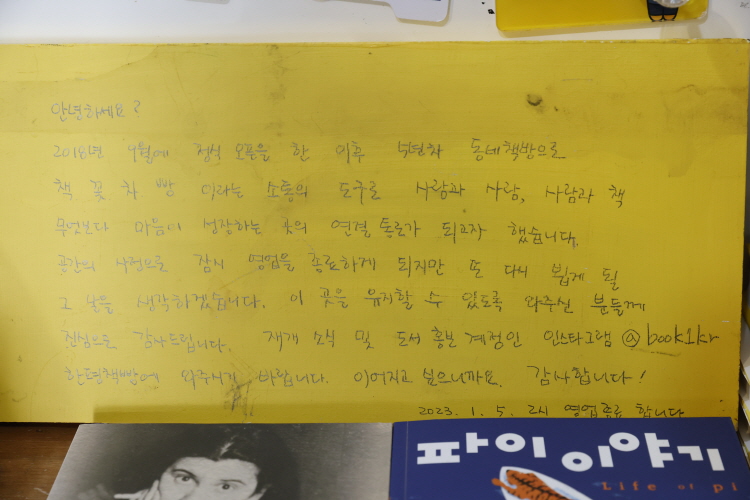 안녕하세요?
2018년 9월에 정식 오픈을 한 이후 5년차 동네책방으로
책 꽃 차 빵 이라는 소통의 도구로 사람과 사람, 사람과 책
무엇보다 마음이 성장하는 곳의 연결통로가 되고자 했습니다.
공간의 사정으로 잠시 영업을 종료하게 되지만 또 다시 뵙게 될
그 날을 생각하겠습니다. 이 곳을 유지할 수 있도록 와주신 분들께
진심으로 감사드립니다. 재개 소식 및 도서 홍보 계정인 인스타그램 @book1kr
한평책빵에 와주시기 바랍니다. 이어지고 싶으니까요. 감사합니다!
2023. 1. 5. 2시 영업종료 합니다
파이 이야기
Life of pi